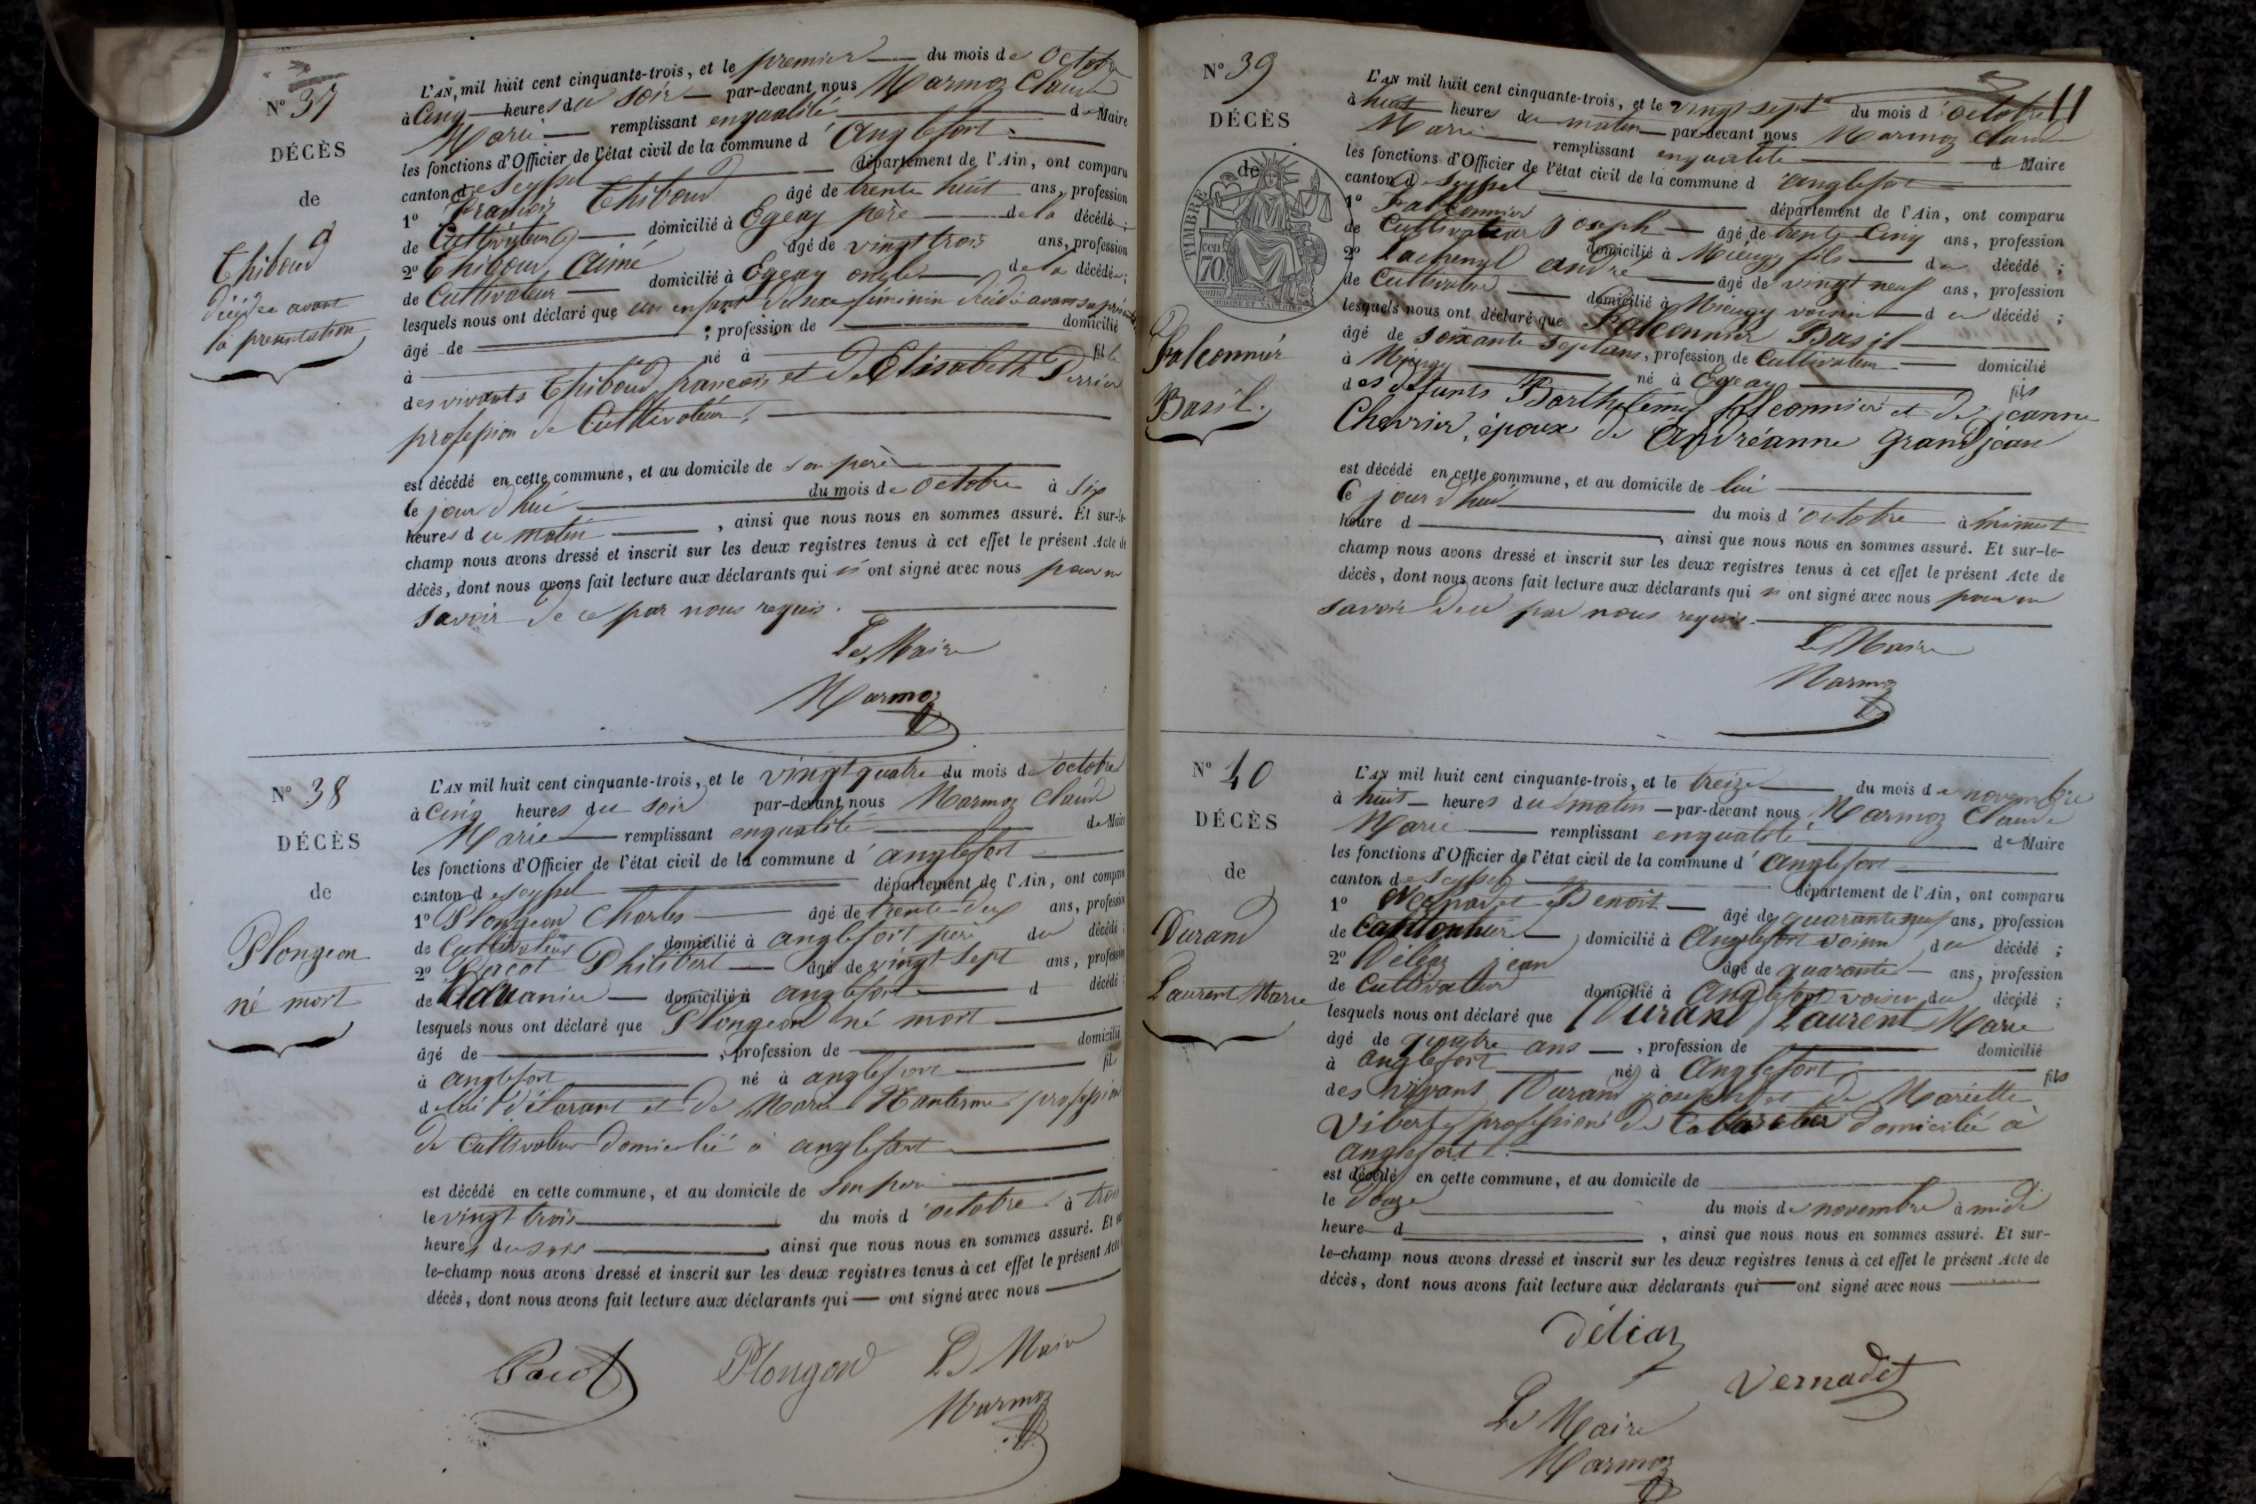 N° 37
DÉCÈS
de
Thiboud
décédée avant
la présentation
L'AN mil huit cent cinquante-trois, et le premier du mois de octobre
à cinq heures du soir par-devant nous Marmoz Claude
Marie remplissant enqualité de Maire
les fonctions d'Officier de l'état civil de la commune d'Anglefort
canton de Seyssel département de l'Ain, ont comparu
1° François Thiboud âgé de trente huit ans, profession
de Cultivateur domicilié à Egeay père de la décédé ;
2° Thiboud Aimé âgé de vingt trois ans, profession
de Cultivateur domicilié à Egeay oncle de la décédé ;
lesquels nous ont déclaré que un enfant du sexe féminin décédé avant sa
âgé de ; profession de domicilié
à né à fille
des vivants Thiboud françois et d'Elisabeth Perrier
profession de Cultivateur,
est décédé en cette commune, et au domicile de son père
le jour d'hui du mois de octobre à six
heures du matin , ainsi que nous nous en sommes assuré. Et sur-le-
champ nous avons dressé et inscrit sur les deux registres tenus à cet effet le présent Acte de
décès, dont nous avons fait lecture aux déclarants qui n'ont signé avec nous pour ne
savoir de ce par nous requis.
Le Maire
Marmoz
N° 38
DÉCÈS
de
Plongeon
né mort
L'AN mil huit cent cinquante-trois, et le vingt quatre du mois d'octobre
à cinq heures du soir par-devant nous Marmoz Claude
Marie remplissant enqualité de Maire
les fonctions d'Officier de l'état civil de la commune d'anglefort
canton de Seyssel département de l'Ain, ont comparu
1° Plongeon Charles âgé de trente deux ans, profession
de Cultivateur domicilié à anglefort père du décédé ;
2° Pacot Philibert âgé de vingt sept ans, profession
de douanier domicilié à anglefort d décédé ;
lesquels nous ont déclaré que Plongeon né mort
âgé de , profession de domicilié
à anglefort né à anglefort fils
de lui déclarant et de Marie profession
de Cultivateur domicilié à anglefort
est décédé en cette commune, et au domicile de son père
le vingt trois du mois d'octobre à trois
heures du soir , ainsi que nous nous en sommes assuré. Et sur-
le-champ nous avons dressé et inscrit sur les deux registres tenus à cet effet le présent Acte
décès, dont nous avons fait lecture aux déclarants qui ont signé avec nous
Pacot Plongeon Le Maire
Marmoz
11
N° 39
DÉCÈS
de
TIMBRE
70 cen
Falconnier
Basil.
L'AN mil huit cent cinquante-trois, et le vingt sept du mois d'octobre
à huit heures du matin par-devant nous Marmoz Claude
Marie remplissant enqualité d Maire
les fonctions d'Officier de l'état civil de la commune d'anglefort
canton d Seyssel département de l'Ain, ont comparu
1° Falconnier Joseph âgé de trente cinq ans, profession
de Cultivateur domicilié à Mieugy fils du décédé ;
2° Lachenal andré âgé de vingt neuf ans, profession
de Cultivateur domicilié à Mieugy voisin du décédé ;
lesquels nous ont déclaré que Falconnier Basil
âgé de soixante sept ans, profession de Cultivateur domicilié
à Mieugy né à Egeay fils
des defunts Barthelémy falconnier et de jeanne
Chevrier, époux de Andréanne grandjean
est décédé en cette commune, et au domicile de lui
le jour d'hui du mois d'octobre à minuit
heure d , ainsi que nous nous en sommes assuré. Et sur-le-
champ nous avons dressé et inscrit sur les deux registres tenus à cet effet le présent Acte de
décès, dont nous avons fait lecture aux déclarants qui n'ont signé avec nous pour ne
savoir de ce par nous requis.
Le Maire
Marmoz
N° 40
DÉCÈS
de
Durand
Laurent Marie
L'AN mil huit cent cinquante-trois, et le treize du mois de novembre
à huit heures du matin par-devant nous Marmoz Claude
Marie remplissant enqualité de Maire
les fonctions d'Officier de l'état civil de la commune d'anglefort
canton de Seyssel département de l'Ain, ont comparu
1° Vernadet Benoit âgé de quarante neuf ans, profession
de Cantonnier domicilié à Anglefort voisin du décédé ;
2° Déléaz jean âgé de quarante ans, profession
de Cultivateur domicilié à Anglefort voisin du décédé ;
lesquels nous ont déclaré que Durand Laurent Marie
âgé de quatre ans , profession de domicilié
à anglefort né à Anglefort fils
des vivant Durand joseph et de Mariette
Vibert profession de Cabaretier domicilié à
anglefort.
est décédé en cette commune, et au domicile de
le douze du mois de novembre à midi
heure d , ainsi que nous nous en sommes assuré. Et sur-
le-champ nous avons dressé et inscrit sur les deux registres tenus à cet effet le présent Acte de
décès, dont nous avons fait lecture aux déclarants qui ont signé avec nous
Déléaz
Vernadet
Le Maire
Marmoz